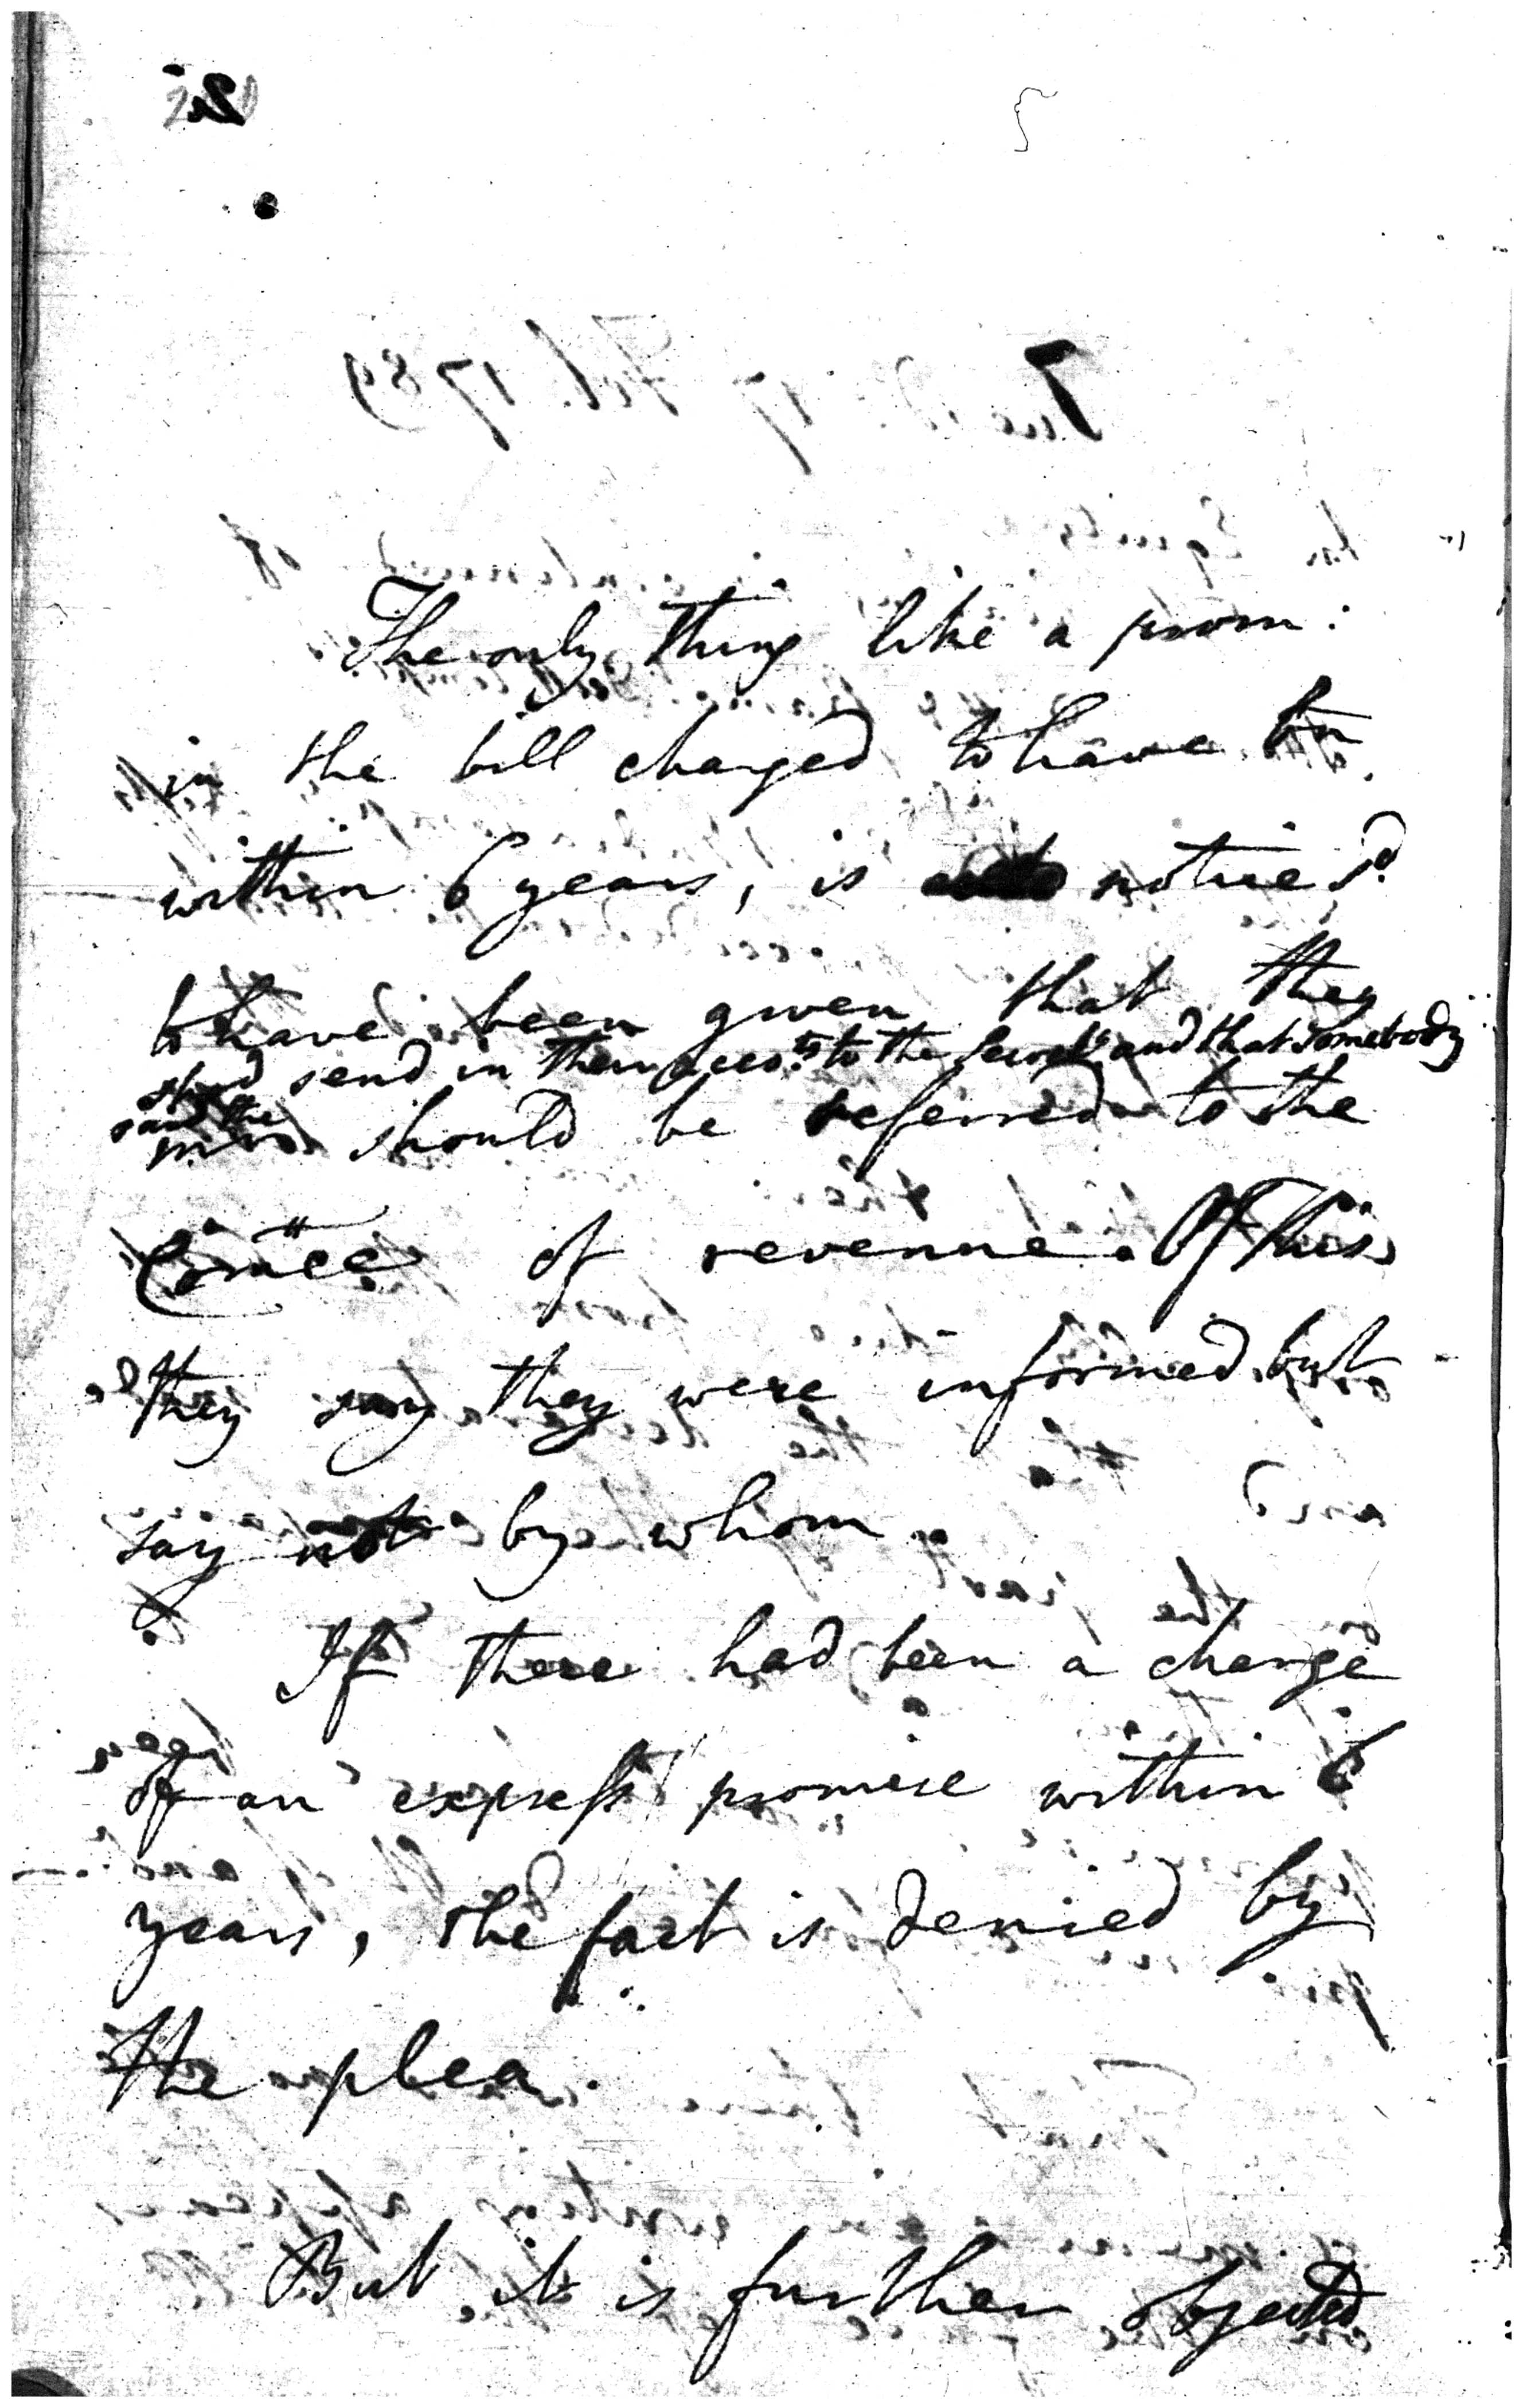 The only thing like a prom:
in the bill charged to have bn
within 6 years, is notice sd.
to have been given that they
shod send in their accots. to the and that somebody
said the should be referred to the
Comee of revenue. Of this
they say they were informed but
say not by whom.
If there had been a charge
of an express promise within 6
years, the fact is denied by
the plea.
But it is further objected